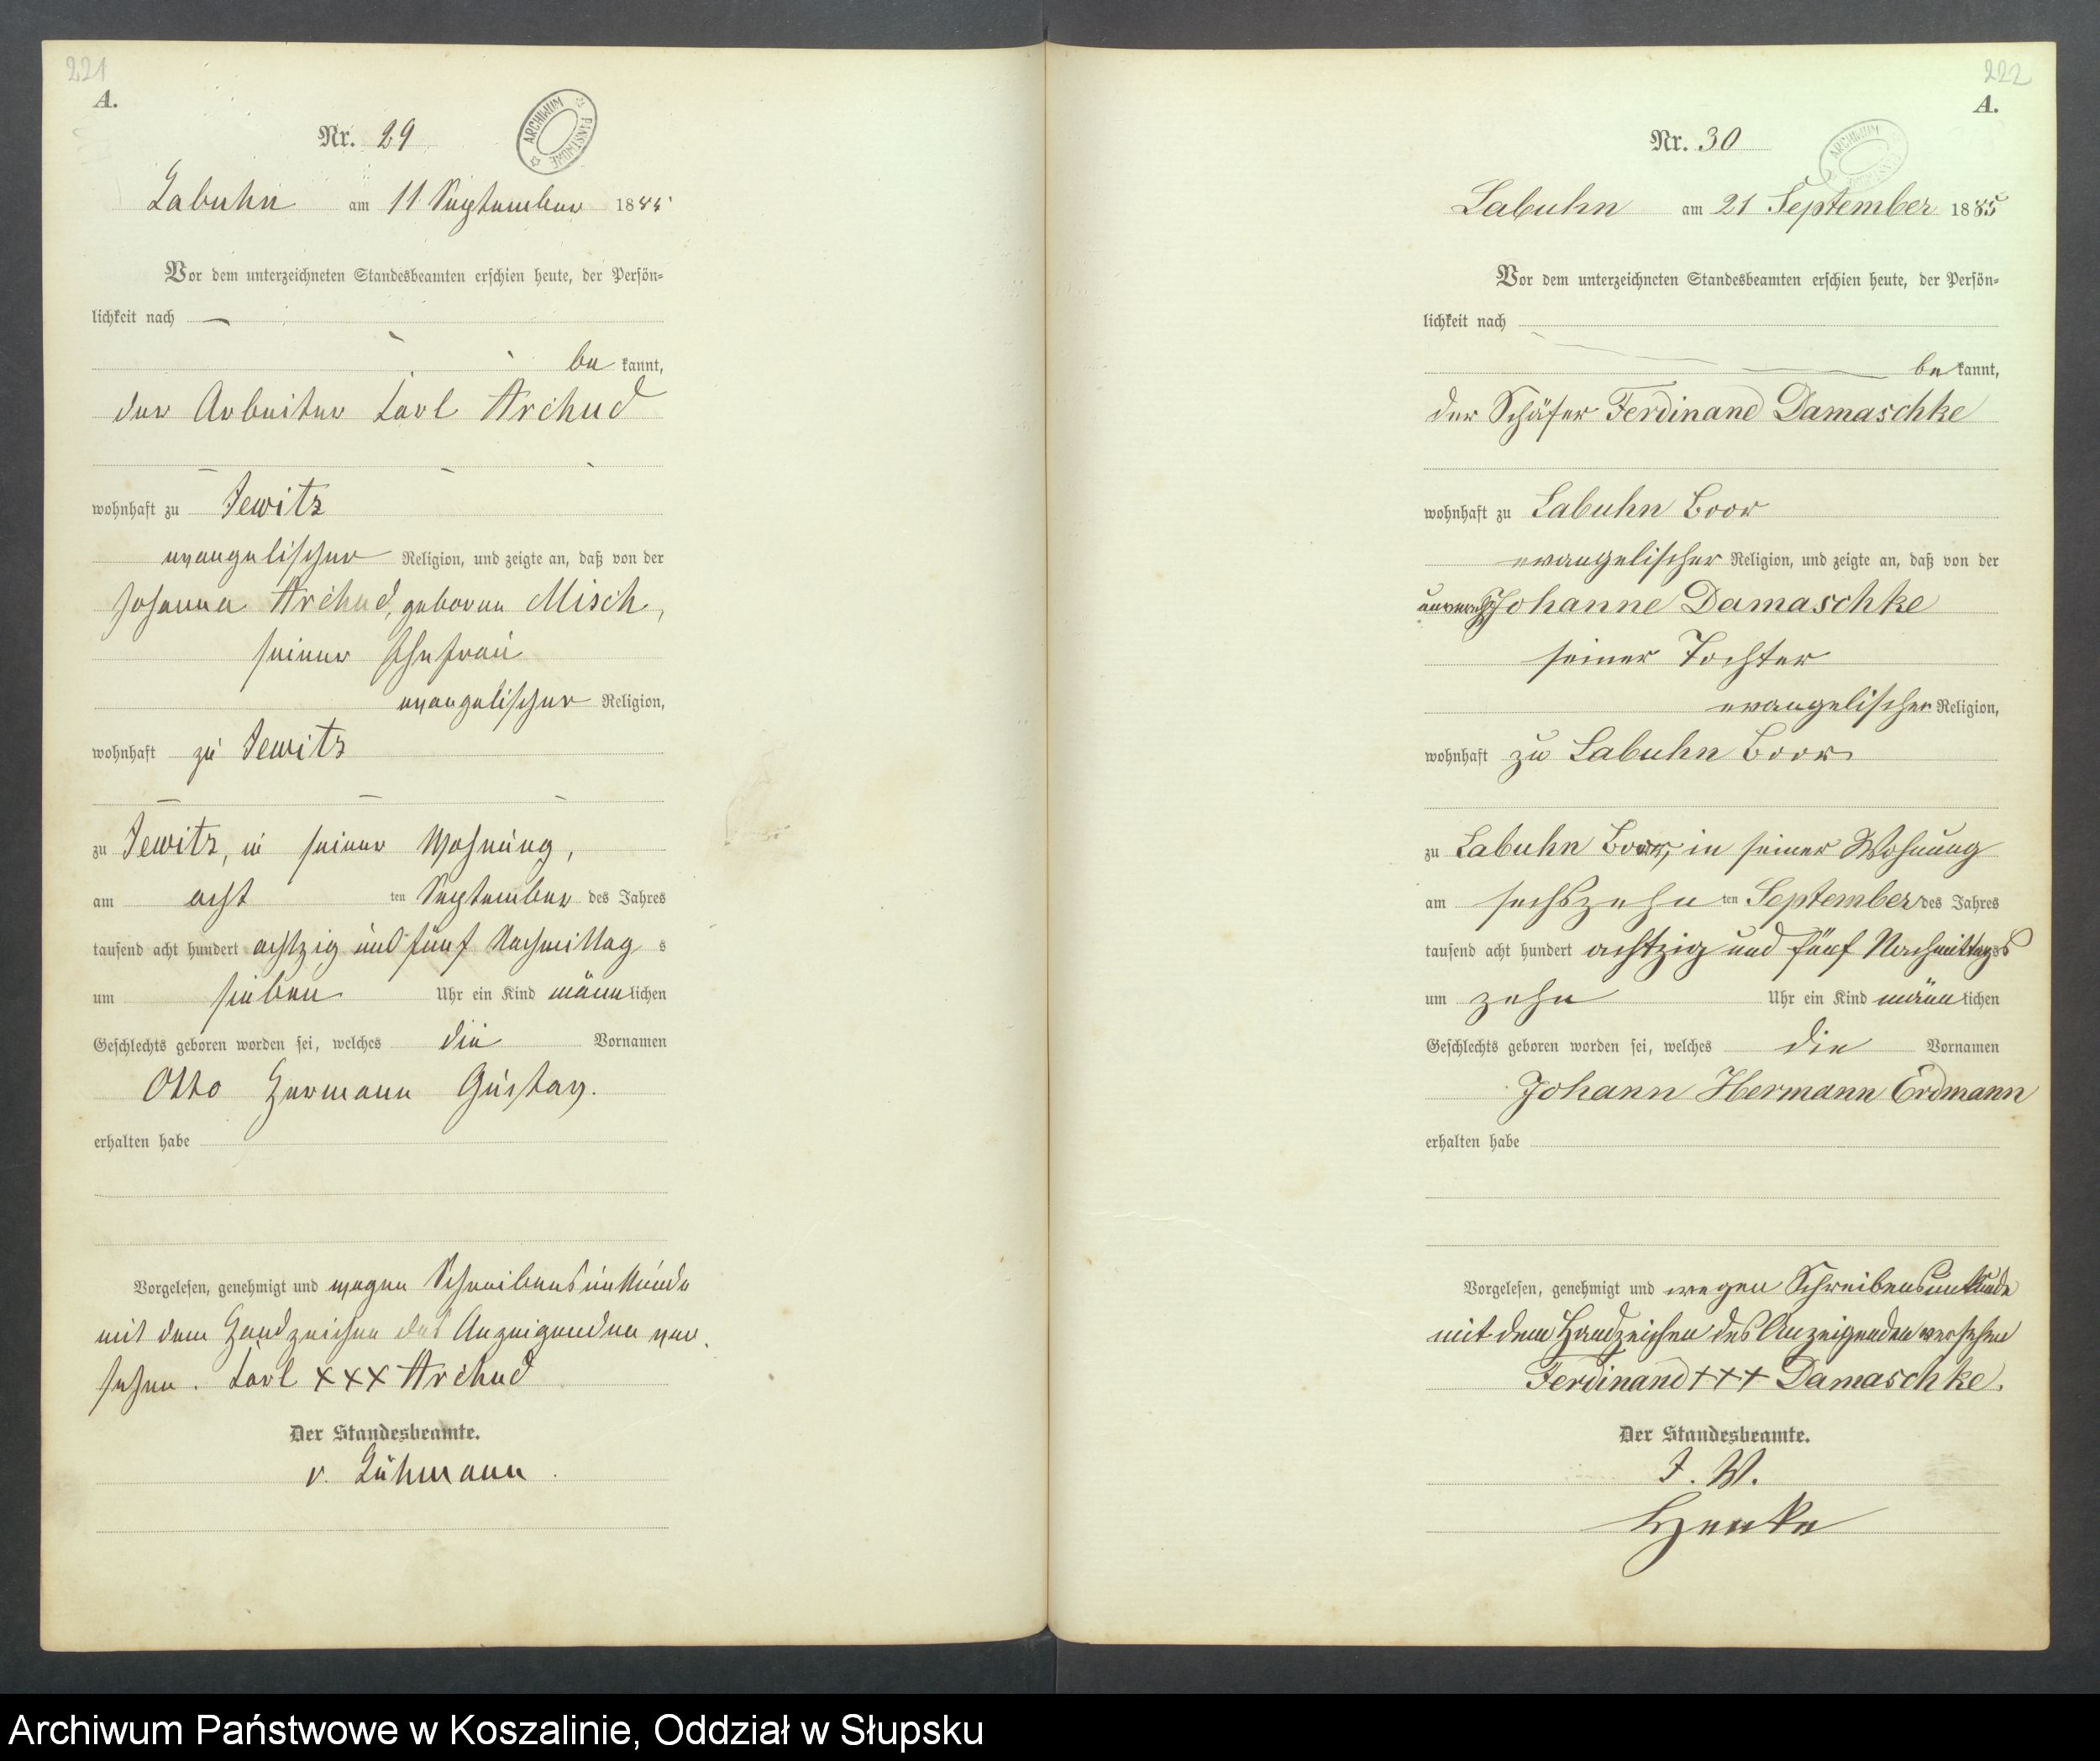 221
A.
Nr. 29
ARCHIWUM PAŃSTWOWE
Labuhn am 11 September 1885
Vor dem unterzeichneten Standesbeamten erschien heute, der Persön-
lichkeit nach
be kannt,
der Arbeiter Carl Archud
wohnhaft zu Jewitz
evangelischer Religion, und zeigte an, daß von der
Johanna Archud, geborene Misch,
seiner Ehefrau
evangelischer Religion,
wohnhaft zu Jewitz
zu Jewitz, in seiner Wohnung,
am acht ten September des Jahres
tausend acht hundert achtzig und fünf Nachmittag s
um sieben Uhr ein Kind männlichen
Geschlechts geboren worden sei, welches die Vornamen
Otto Hermann Gustav.
erhalten habe
Vorgelesen, genehmigt und wegen Schreibensunkunde
mit dem Handzeichen des Anzeigenden ver-
sehen. Carl XXX Archud
Der Standesbeamte.
v. Lühmann.
222
A.
Nr. 30
ARCHIWUM
Labuhn am 21 September 1885
Vor dem unterzeichneten Standesbeamten erschien heute, der Persön-
lichkeit nach
be kannt,
der Schäfer Ferdinand Damaschke
wohnhaft zu Labuhn Boor
evangelischer Religion, und zeigte an, daß von der
Johanne Damaschke
seiner Tochter
evangelischer Religion,
wohnhaft zu Labuhn Boor
zu Labuhn Boor, in seiner Wohnung
am sechszehn ten September des Jahres
tausend acht hundert achtzig und fünf Nachmittags
um zehn Uhr ein Kind männlichen
Geschlechts geboren worden sei, welches die Vornamen
Johann Hermann Erdmann
erhalten habe
Vorgelesen, genehmigt und wegen Schreibensunkunde
mit dem Handzeichen des Anzeigenden versehen
Ferdinand +++ Damaschke.
Der Standesbeamte.
J. W.
Henke
Archiwum Państwowe w Koszalinie, Oddział w Słupsku